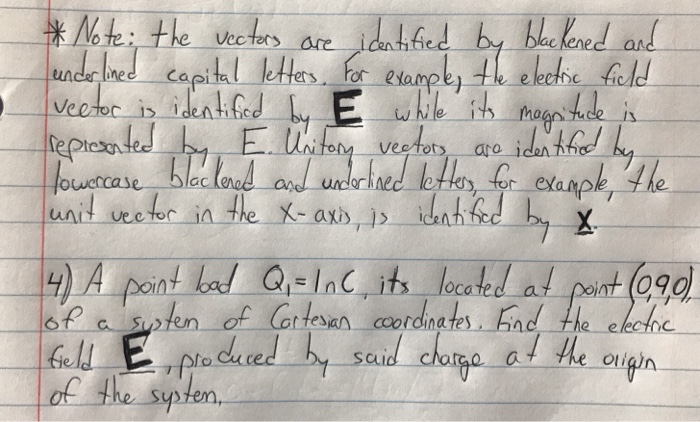 * Note: the vectors are identified by blackened and
underlined capital letters. For example, the electric field
vector is identified by E while its magnitude is
represented by E. Unitary vectors are identified by
lowercase blackened and underlined letters, for example, the
unit vector in the X-axis, is identified by x.
4) A point load Q₁=1nC, its located at point (0,9,0)
of a system of Cartesian coordinates. Find the electric
field E, produced by said charge at the origin
of the system,